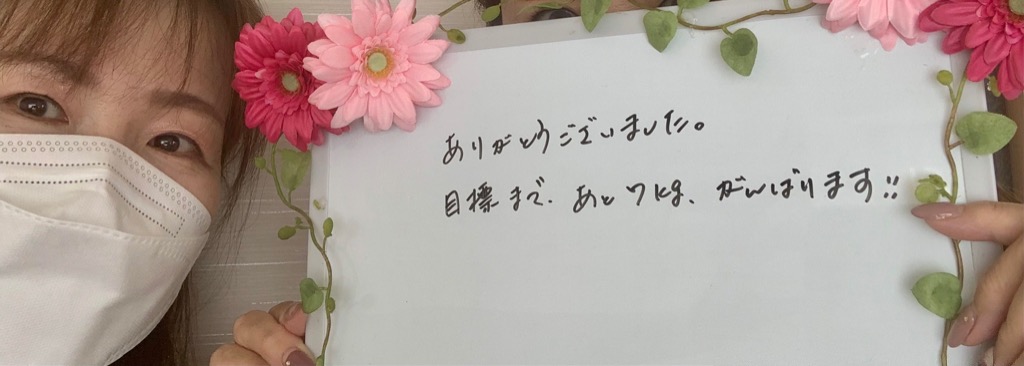 ありがとうございました。
目標まで、あと7kg、がんばります!!